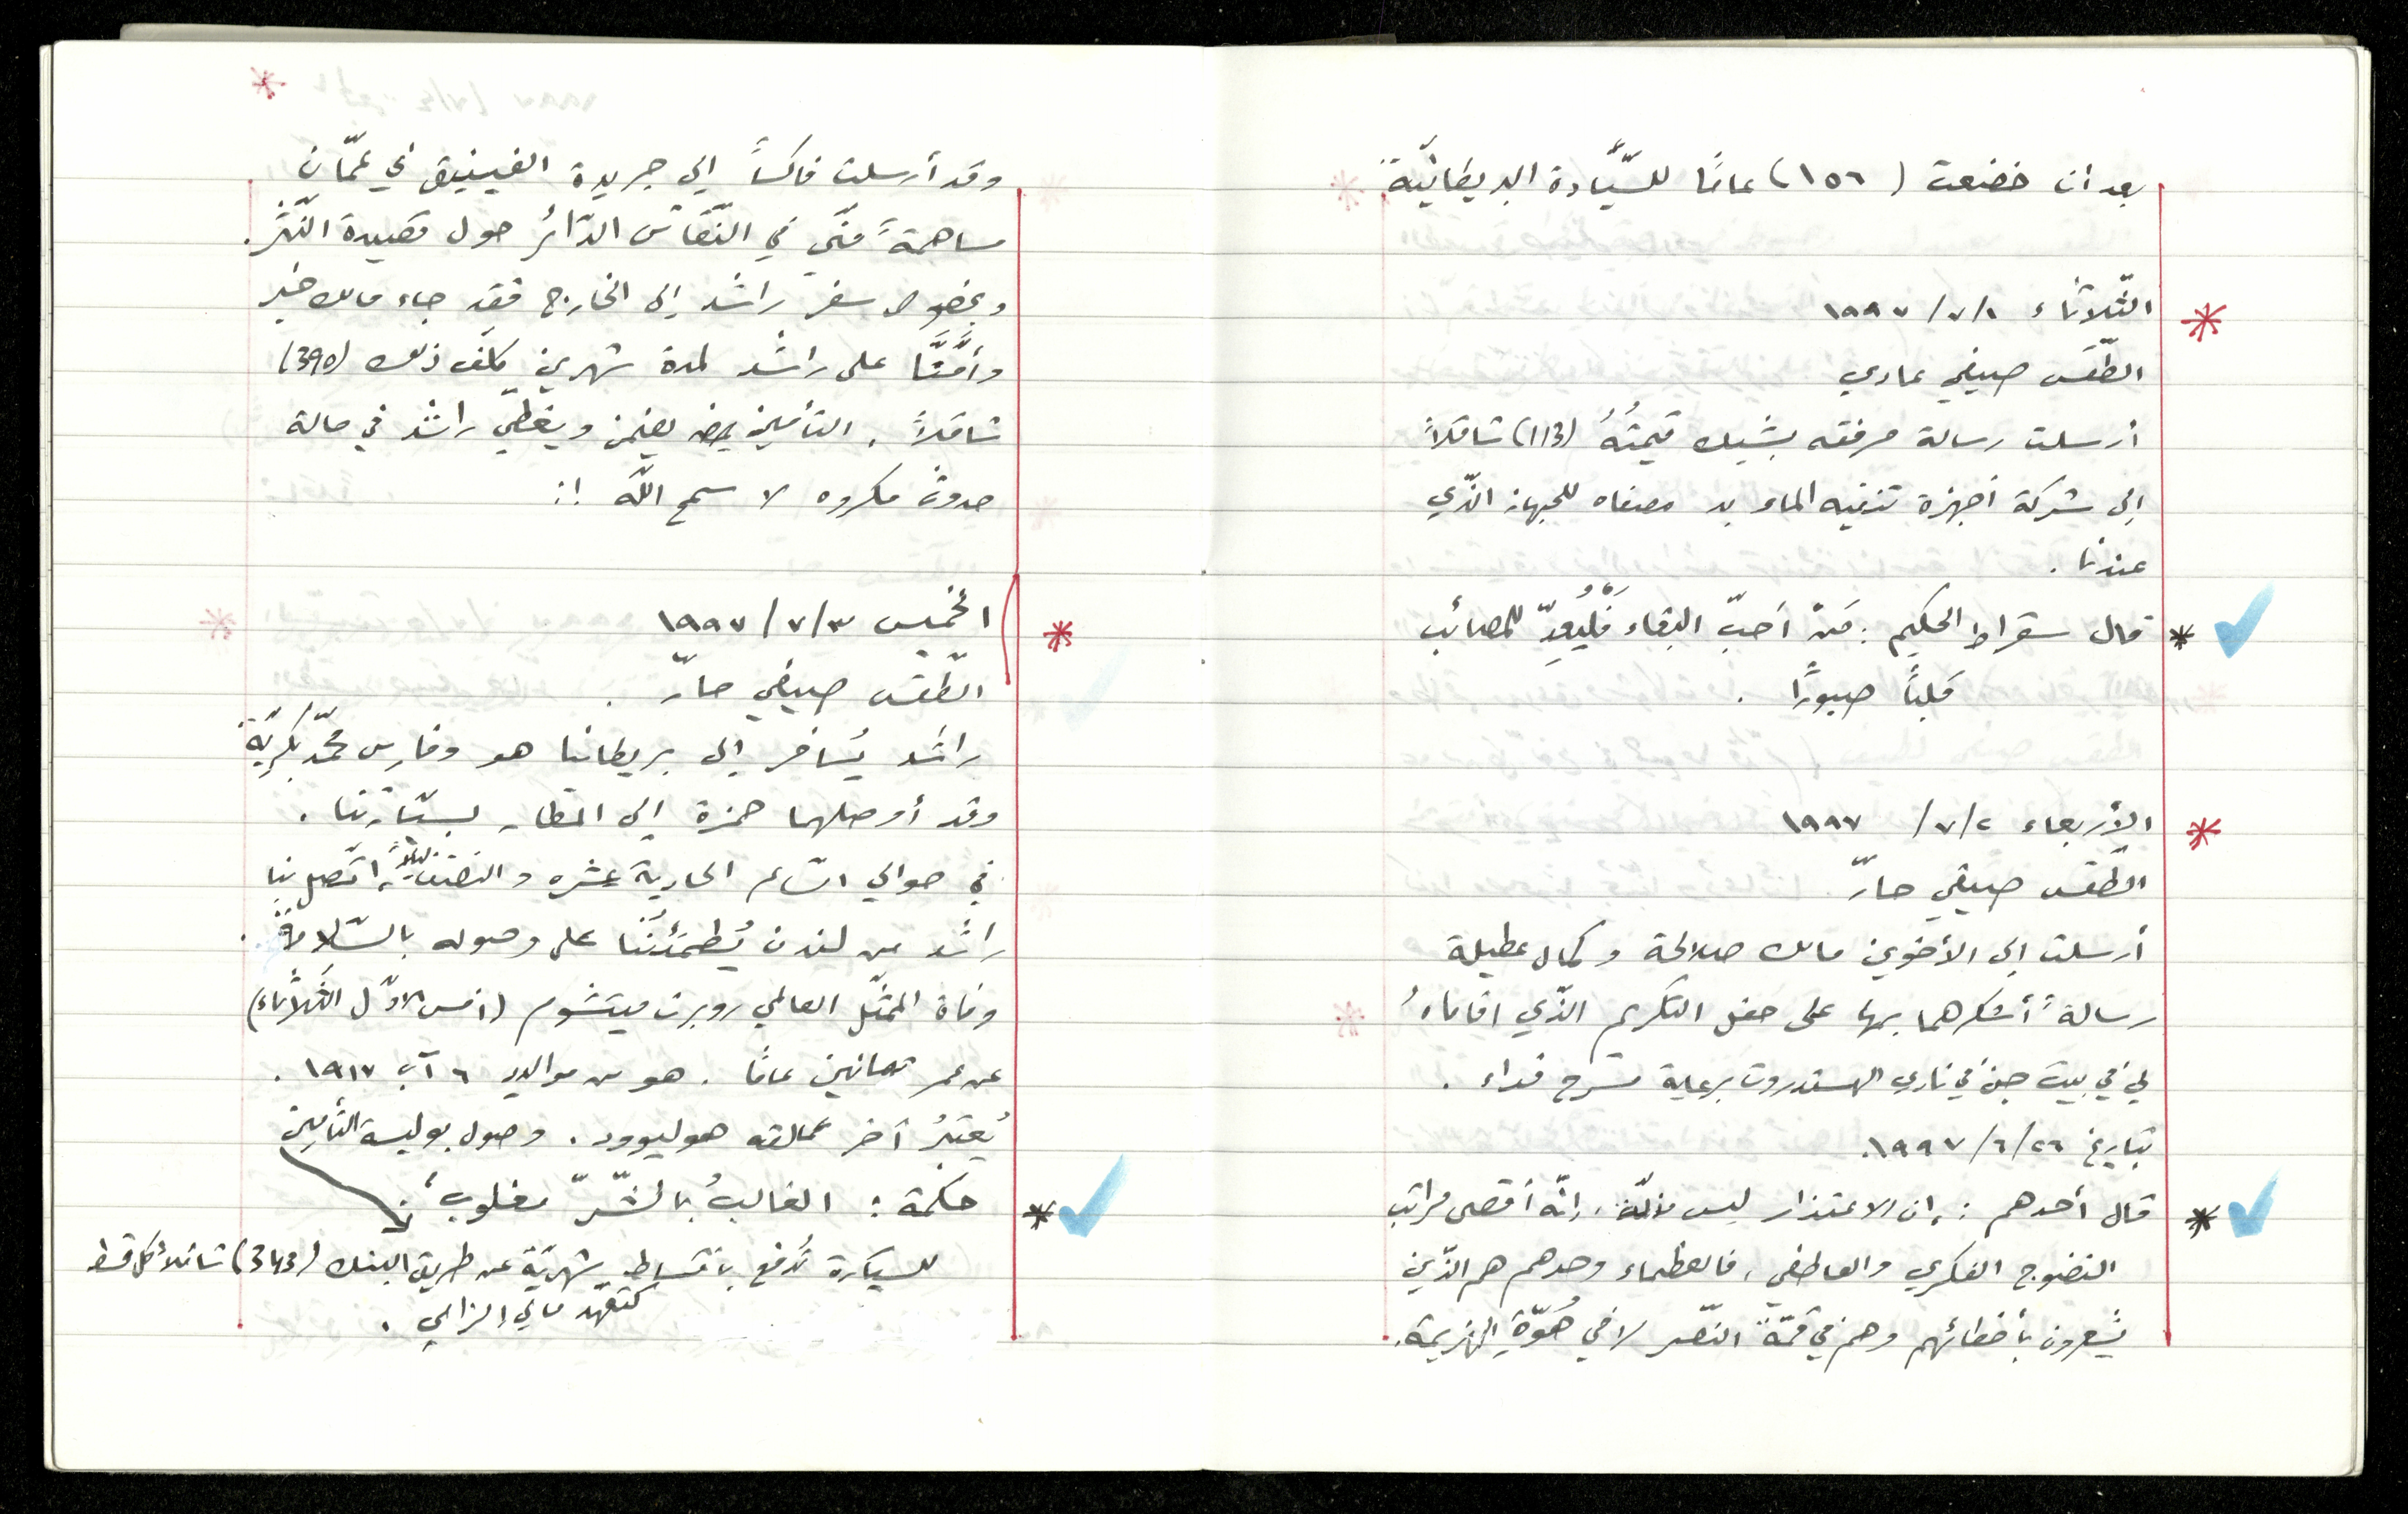 بعد أن خضعت (١٥٦) عامًا للسّيادة البريطانيّة.
الثّلاثاء ١/٧/١٩٩٧
الطّقس صيفي عادي
أرسلت رسالة مرفقه بشيك قيمتُهُ (113) شاقلاً
إلى شركة أجهزة تنقيه الماء بد مصفاه للجهاز الذّي
عندنا.
* قال سقراط الحكيم: مَنْ أحبّ البقاء فَلْيُعِدّ للمصائب
قلبًا صبورًا.
الأربعاء ٢/٧/١٩٩٧
الطّقس صيفي حارّ.
أرسلت إلى الأخوين مالك صلالحة وكمال عطيلة
رسالةً أشكرهما بها على حفل التكريم الذّي اقاماهُ
لي في بيت جن في نادي الهستدروت برعاية مسرح فداء.
بتاريخ ٢٦/٦/١٩٩٧.
* قال أحدهم: إن الاعتذار ليس مذلّة، إنّه أقصى مراتب
النضوج الفكري والعاطفي، فالعظماء وحدهم هم الذّين
يشعرون بأخطائهم وهم في قمّة النّصر لا في هُوّةِ الهزيمة.
وقد أرسلت فاكسًا إلى جريدة الفينيق في عمّان
مساهمةً منّي في النّقاش الدّائر حول قصيدة النّثر.
وبخصوص سفر راشد إلى الخارج فقد جاء مالك خير
وأمَّنَّا على راشد لمدة شهرين كلّف ذلك (390)
شاقلاً. التأمين يضمن ويغطّي راشد في حالة
حدوث مكروه لا سمح اللّه !:
الخميس ٣/٧/١٩٩٧
الطّقس صيفي حارّ.
راشد يُسافر إلى بريطانيا هو وفارس محمّد بكريّة
وقد أوصلهما حمزة إلى المطار بسيّارتنا.
في حوالي السّاعة الحادية عشره والنصف ليلاً، اتّصل بنا
راشد من لندن يُطمئنُنا على وصوله بالسّلامة.
وفاة الممثّل العالمي روبرت ميتشوم (أمس الأوّل الثّلاثاء)
عن عمر ثمانين عامًا. هو من مواليد ٦ آب ١٩١٧.
يُعتبرُ آخر عمالقه هوليوود. وصول بوليسة التأمين
* حكمة: الغالبُ بالشّرّ مغلوب.
للسيّارة تُدفع بأقساط شهريّة عن طريق البنك (343) شاقلاً كل قسط
كتعهّد مالي إلزامي.